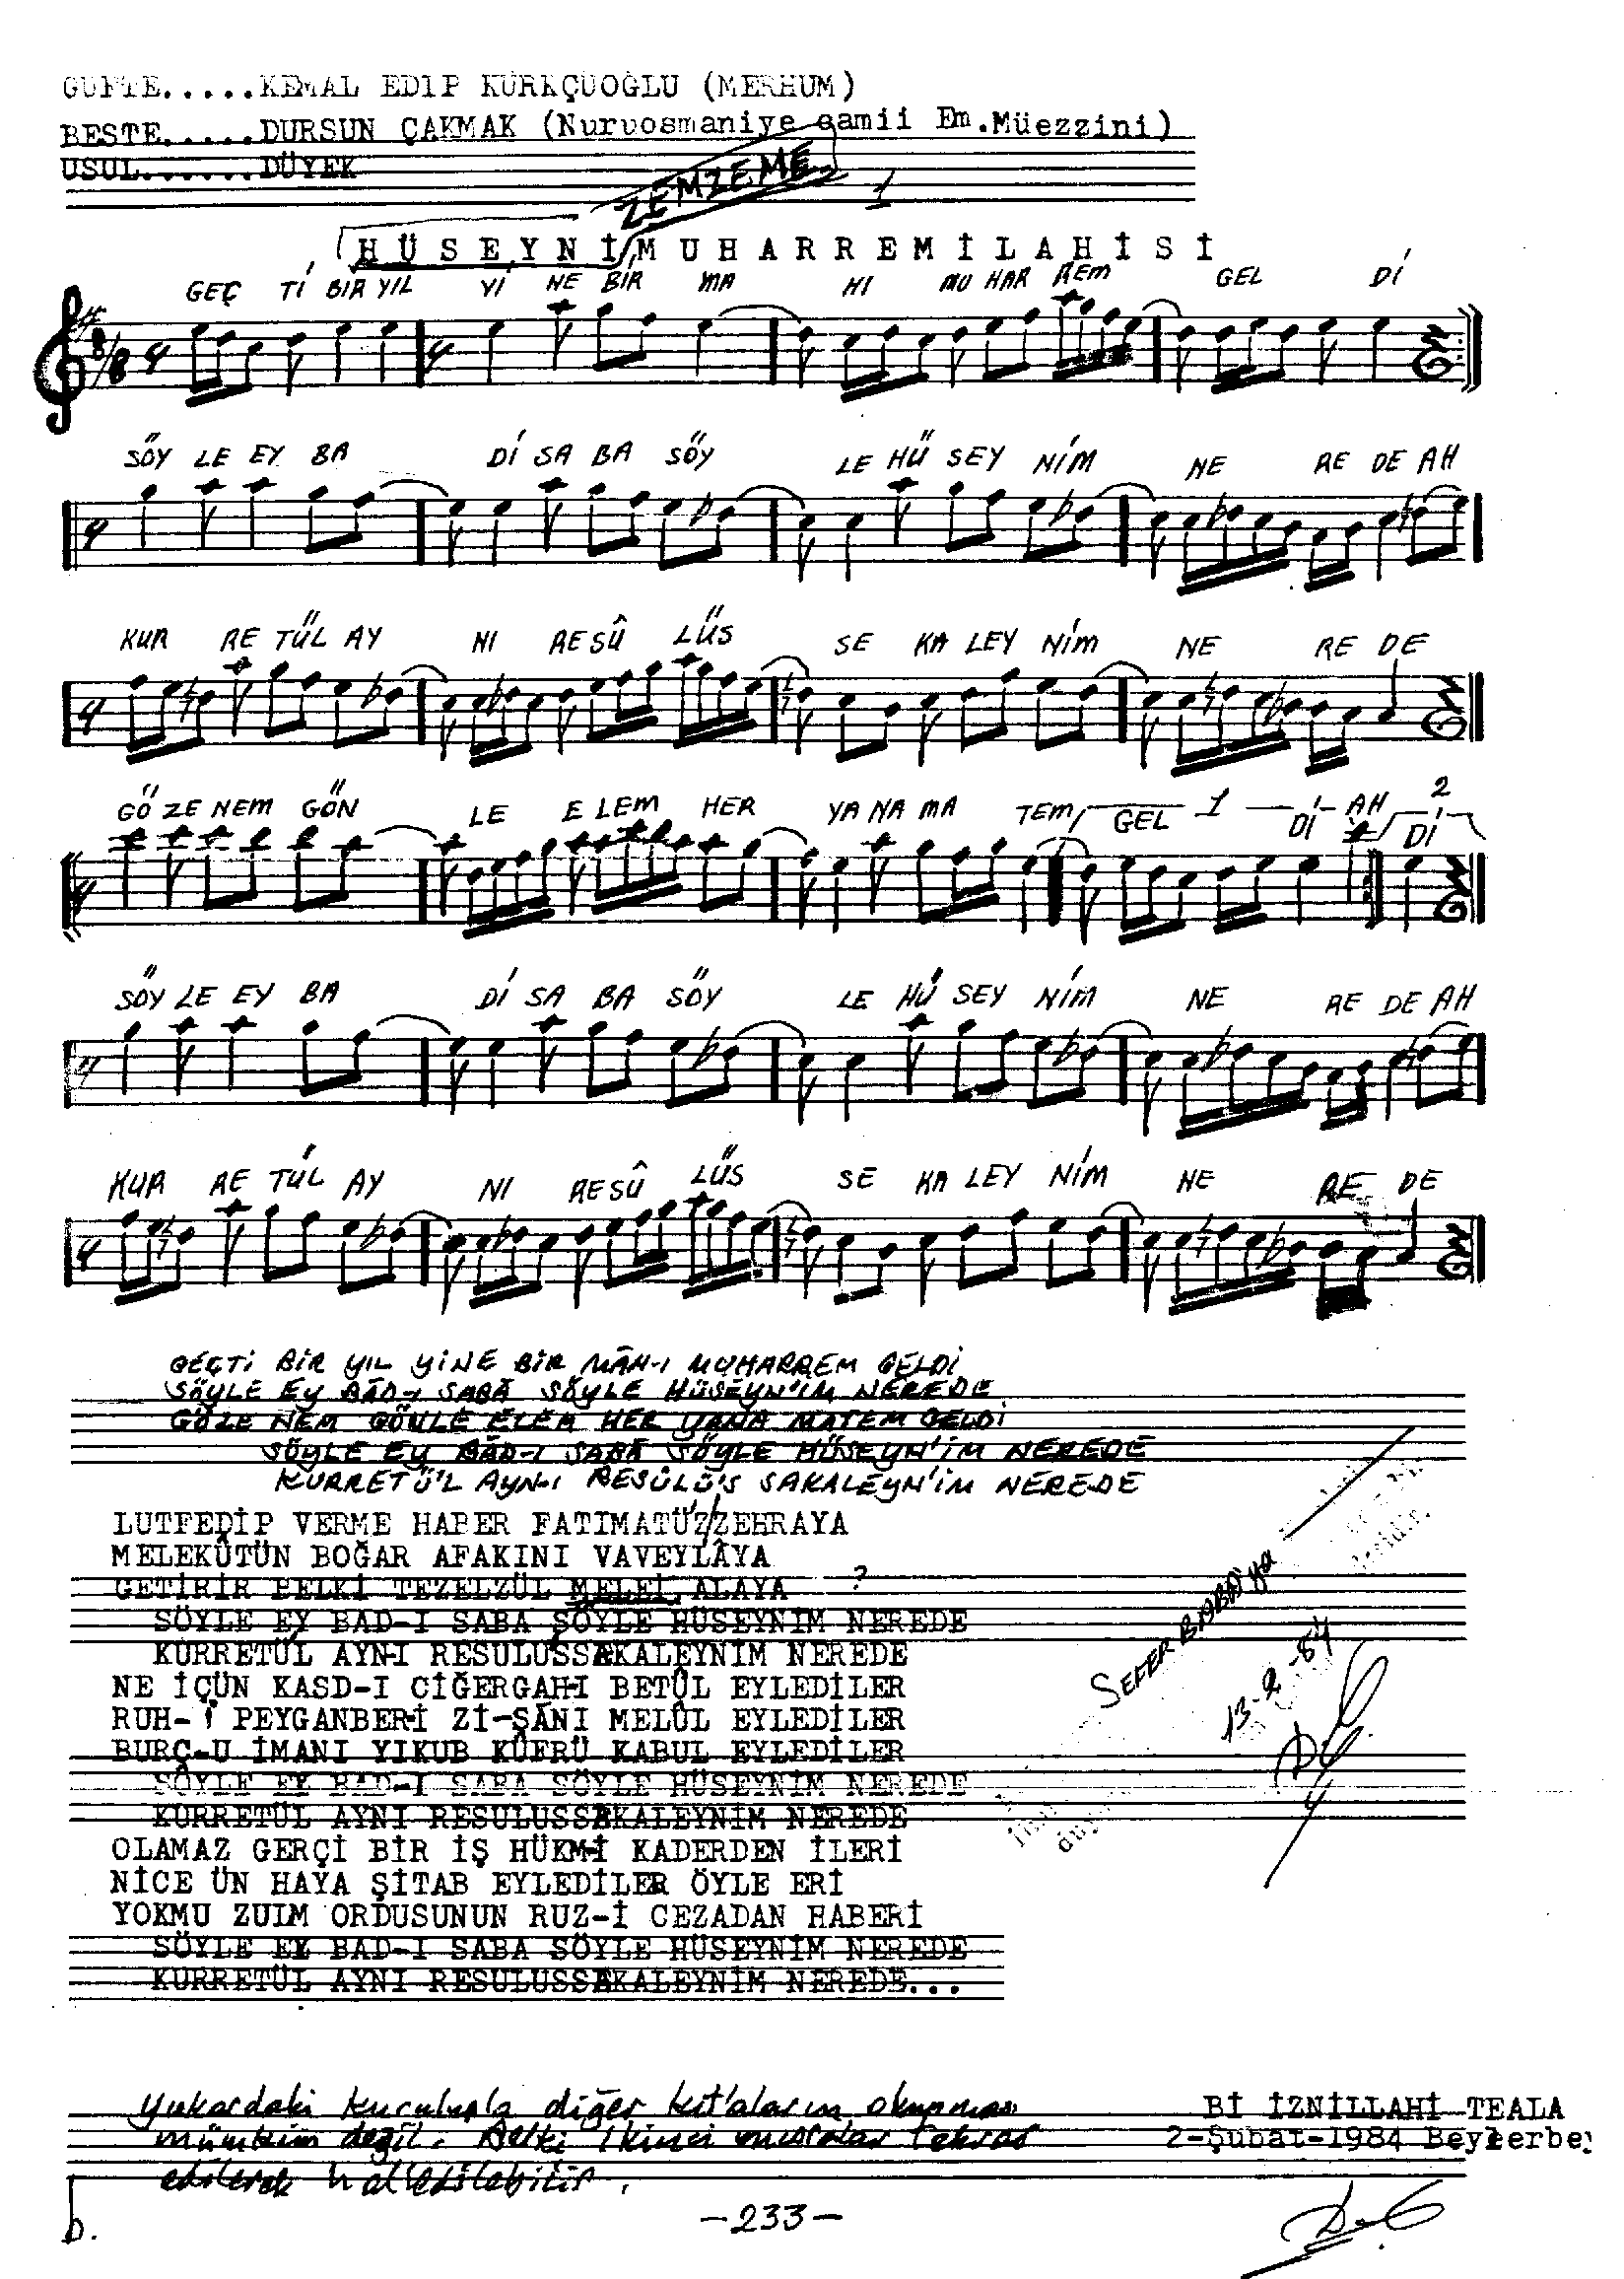 GÜFTE.....KEMAL EDİP KÜRKÇÜOĞLU (MERHUM)
BESTE.....DURSUN ÇAKMAK (Nuruosmaniye camii Em.Müezzini)
USUL......DÜYEK
ZEMZEME 1
HÜSEYNİ MUHARREM İLAHİSİ
GEÇ Tİ BİR YIL Yİ NE BİR MA HI MU HAR REM GEL Dİ
8/8
SÖY LE EY BA Dİ SA BA SÖY LE HÜ SEY NİM NE RE DE AH
KUR RE TÜL AY NI RE SÛ LÜS SE KA LEY NİM NE RE DE
GÖ ZE NEM GÖN LE E LEM HER YA NA MA TEM GEL 1 Dİ AH 2 Dİ
SÖY LE EY BA Dİ SA BA SÖY LE HÜ SEY NİM NE RE DE AH
KUR RE TÜL AY NI RE SÛ LÜS SE KA LEY NİM NE RE DE
GEÇTİ BİR YIL YİNE BİR MÂH-I MUHARREM GELDİ
SÖYLE EY BÂD-I SABÂ SÖYLE HÜSEYN'İM NEREDE
GÖZE NEM GÖNLE ELEM HER YANA MATEM GELDİ
SÖYLE EY BÂD-I SABÂ SÖYLE HÜSEYN'İM NEREDE
KURRETÜ'L AYN-I RESÛLÜ'S SAKALEYN'İM NEREDE
LUTFEDİP VERME HABER FATIMATÜZ/ZEHRAYA
MELEKÛTÜN BOĞAR AFAKINI VAVEYLÂYA
GETİRİR BELKİ TEZELZÜL MELEİ ALAYA ?
SÖYLE EY BAD-I SABA SÖYLE HÜSEYNİM NEREDE
KURRETÜL AYN-I RESULUSSEKALEYNİM NEREDE
NE İÇÜN KASD-I CİĞERGAH-I BETÛL EYLEDİLER
RUH-İ PEYGANBER-İ Zİ-ŞÂNI MELÛL EYLEDİLER
BURÇ-U İMANI YIKUB KÜFRÜ KABUL EYLEDİLER
SÖYLE EY BAD-I SABA SÖYLE HÜSEYNİM NEREDE
KURRETÜL AYNI RESULUSSEKALEYNİM NEREDE
OLAMAZ GERÇİ BİR İŞ HÜKM-İ KADERDEN İLERİ
NİCE ÜN HAYA ŞİTAB EYLEDİLER ÖYLE ERİ
YOKMU ZULM ORDUSUNUN RUZ-İ CEZADAN HABERİ
SÖYLE EY BAD-I SABA SÖYLE HÜSEYNİM NEREDE
KURRETÜL AYNI RESULUSSEKALEYNİM NEREDE...
SEFER BABA'YA
13-2-84
Yukardaki kuruluşla diğer kıt'aların okunması
mümkün değil. Belki ikinci mısralar tekrar
edilerek halledilebilir.
Bİ İZNİLLAHİ TEALA
2-Şubat-1984 Beylerbey
-233-